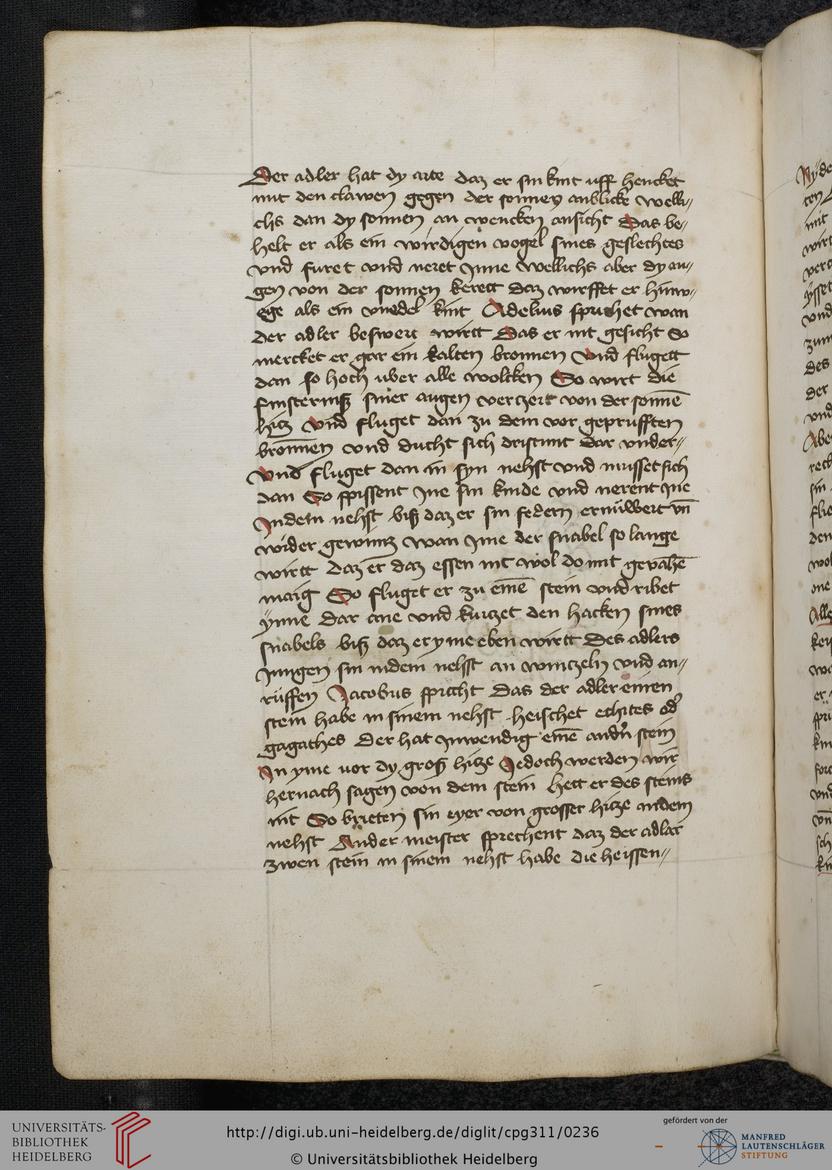 Der adler hat dy arte daz er sin kint uff hencket
mit den clawen gegen der sonnen anblicke welli-
chs dan dy sonnen an wencken ansicht Das be-
helt er als ein wirdigen vogel sines geslechtes
vnd furet vnd neret Jnne wellichs aber dy au-
gen von der sonnen kerett daz wirffet er hinw-
ege als ein vnedel kint Adelius sprichet wan
der adler beswert wirtt Das er nit gesicht So
mercket er gar ein kalten bronnen Vnd flugett
dan so hoch uber alle wolcken So wirt die
finsterniß siner augen verczert von der sonnē
hitz Vnd fluget dan zu dem vor geprufften
bronnen vnd ducht sich dristunt dar vnder
Vnd fluget dan in syn nehst vnd musset sich
dan So spissent Jne sin kinde vnd nerent Jne
Jndem nehst biß daz er sin federn ernuwert vn̄
wider gewintz wan Jme der snabel so lange
wirtt daz er daz essen nit wol do mit gevahē
maig So fluget er zu eine stein vnd ribet
ynne dar ane vnd kurczet den hacken sines
snabels biß daz er yme eben wirtt Des adlers
Jungen sin indem nehst an wintzeln vnd an
rüffen Jacobus spricht Das der adler einen
stein habe in sinem nehst heischet echites od
gagathes Der hat Jnwendig einē andn stein
Jn yme vor dy groß hitze Jedoch werden wir
hernach sagen von dem stein hett er des steins
nit So brieten sin eyer von grosser hitze indem
nehst Ander meister sprechent daz der adlar
zwen stein in sinem nehst habe die heissen
UNIVERSITÄTS-
BIBLIOTHEK
HEIDELBERG
http://digi.ub.uni-heidelberg.de/diglit/cpg311/0236
© Universitätsbibliothek Heidelberg
gefördert von der
MANFRED
LAUTENSCHLÄGER
STIFTUNG